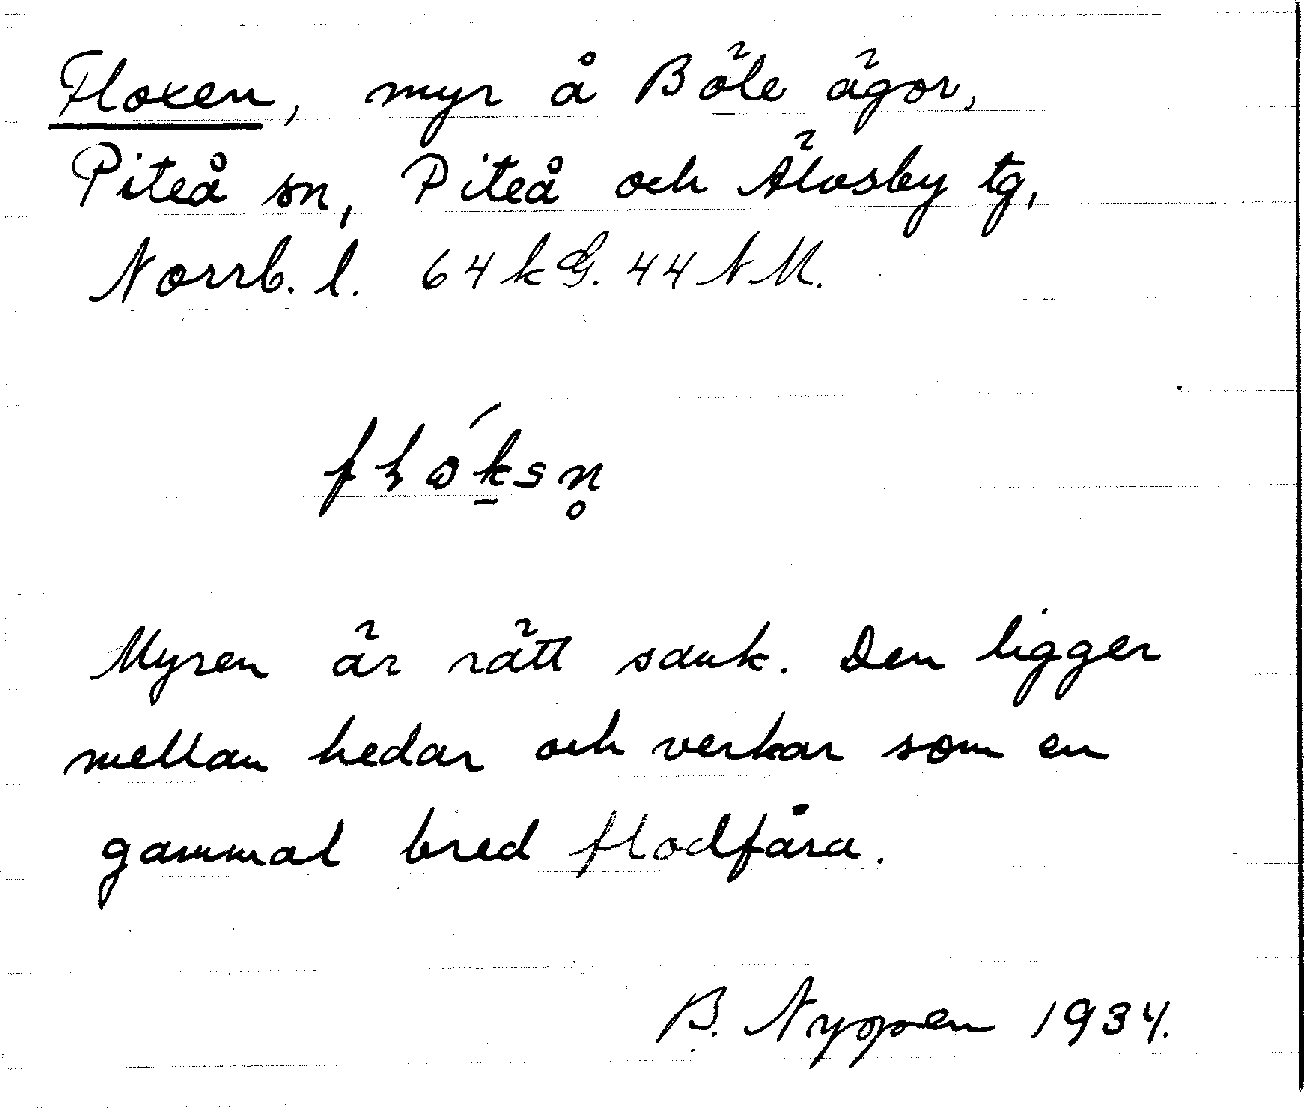 Floxen, myr å Böle ägor,
Piteå sn, Piteå och Älvsby tg,
Norrb. l. 64 k G. 44 N M.
Myren är rätt sank. Den ligger
mellan hedar och verkar som en
gammal bred flodfåra.
B. Nyppen 1934.